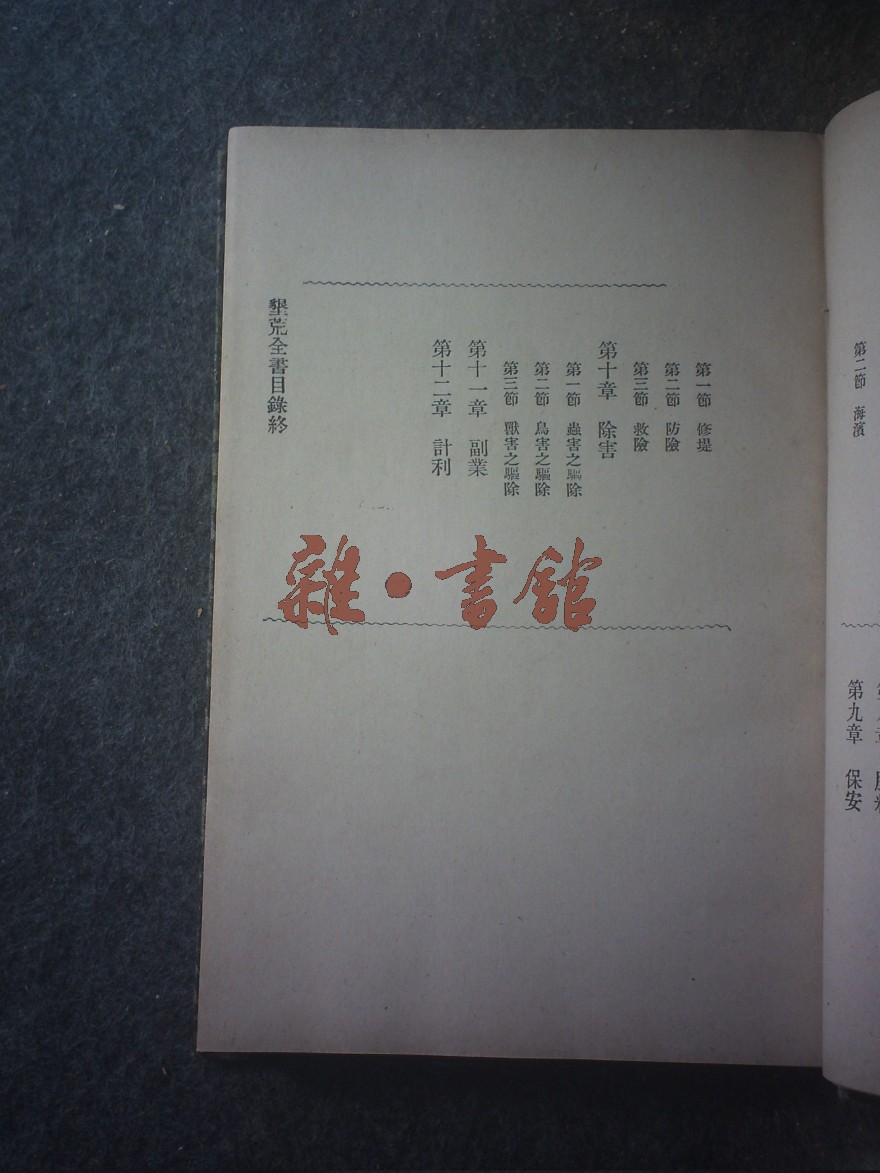 第二節 海濱
第九章 保安
第一節 修堤
第二節 防險
第三節 救險
第十章 除害
第一節 蟲害之驅除
第二節 鳥害之驅除
第三節 獸害之驅除
第十一章 副業
第十二章 計利
墾荒全書目錄終
雜·書館